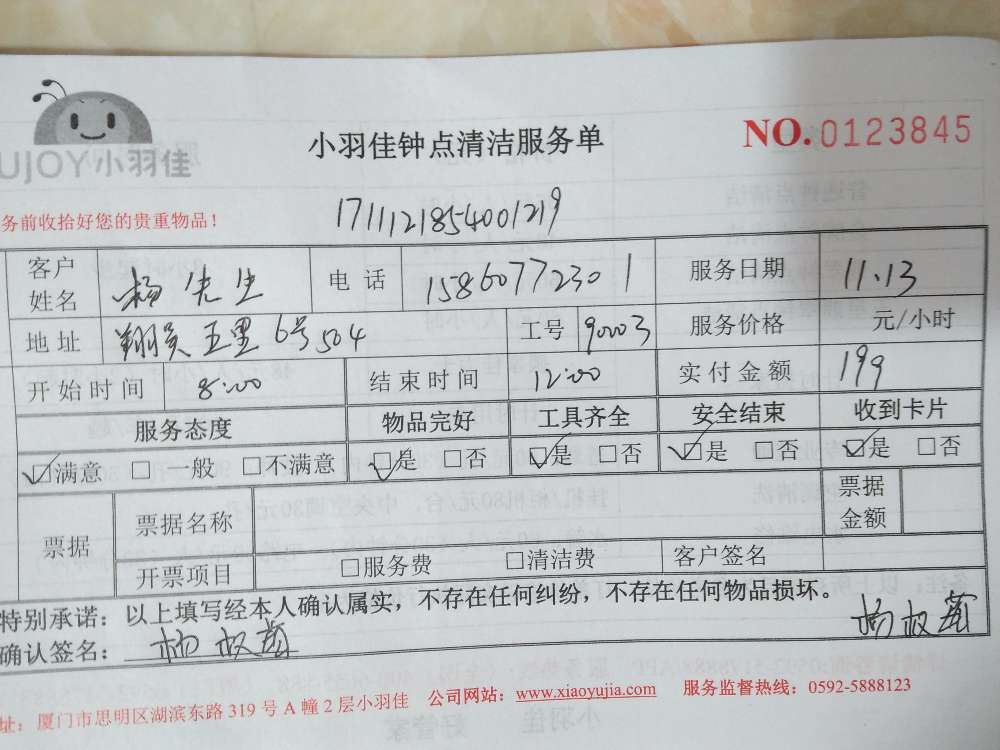 UJOY小羽佳
小羽佳钟点清洁服务单
NO.0123845
务前收拾好您的贵重物品！
1711121854001219
客户姓名 杨先生 电话 15860772301 服务日期 11.13
地址 五里6号504 工号 90003 服务价格 元/小时
开始时间 8:00 结束时间 12:00 实付金额 199
服务态度 物品完好 工具齐全 安全结束 收到卡片
☑满意 □一般 □不满意 ☑是 □否 ☑是 □否 ☑是 □否 ☑是 □否
票据 票据名称 票据金额
开票项目 □服务费 □清洁费 客户签名
特别承诺：以上填写经本人确认属实，不存在任何纠纷，不存在任何物品损坏。
确认签名：
址：厦门市思明区湖滨东路319号A幢2层小羽佳 公司网站：www.xiaoyujia.com 服务监督热线：0592-5888123